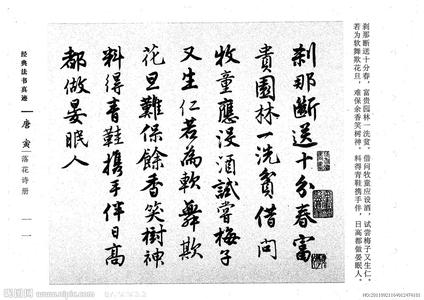 刹那断送十分春，富贵园林一洗贫。借问牧童应没酒，试尝梅子又生仁。
若为软舞欺花旦，难保余香笑树神。料得青鞋携手伴，日高都做晏眠人。
刹那斷送十分春富
貴園林一洗貧借問
牧童應没酒試嘗梅子
又生仁若為軟舞欺
花旦難保餘香笑樹神
料得青鞋攜手伴日高
都做晏眠人
经典法书真迹 唐寅 落花诗册 一一
www.nipic.com